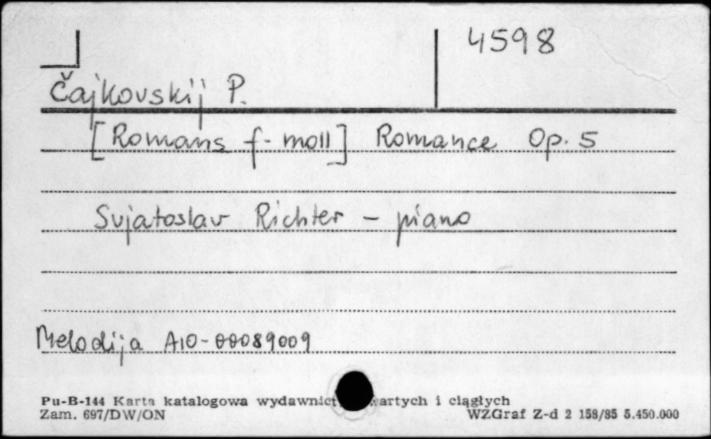 4598
Čajkovskij P.
[Romans f-moll] Romance Op. 5
Svjatoslav Richter - piano
Melodija A10-00089009
Pu-B-144 Karta katalogowa wydawnict i ciągłych
Zam. 697/DW/ON WZGraf Z-d 2 158/85 5.450.000